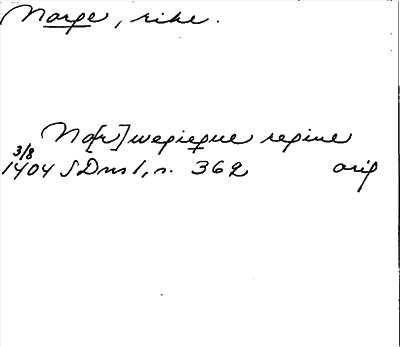 Norge, rike.
No[r]wegieque regine
3/8
1404 SDns 1, n. 362 orig